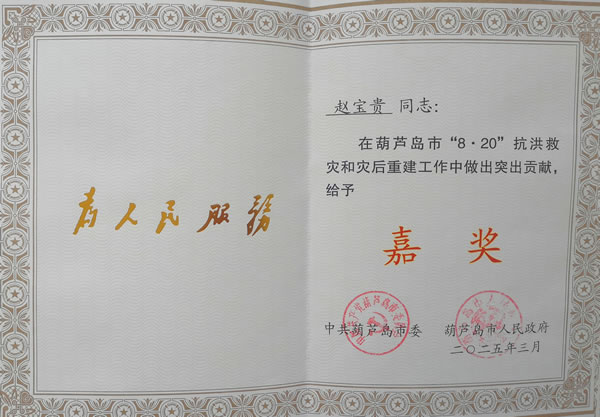 为人民服務
赵宝贵 同志:
在葫芦岛市“8·20”抗洪救
灾和灾后重建工作中做出突出贡献,
给予
嘉 奖
中共葫芦岛市委 葫芦岛市人民政府
二〇二五年三月